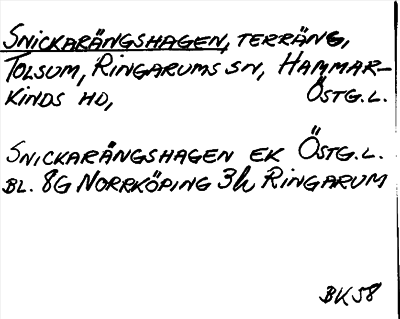 SNICKARÄNGSHAGEN, TERRÄNG,
TOLSUM, RINGARUMS SN, HAMMAR-
KINDS HD, ÖSTG.L.
SNICKARÄNGSHAGEN EK ÖSTG.L.
BL. 8G NORRKÖPING 3h RINGARUM
BK 58